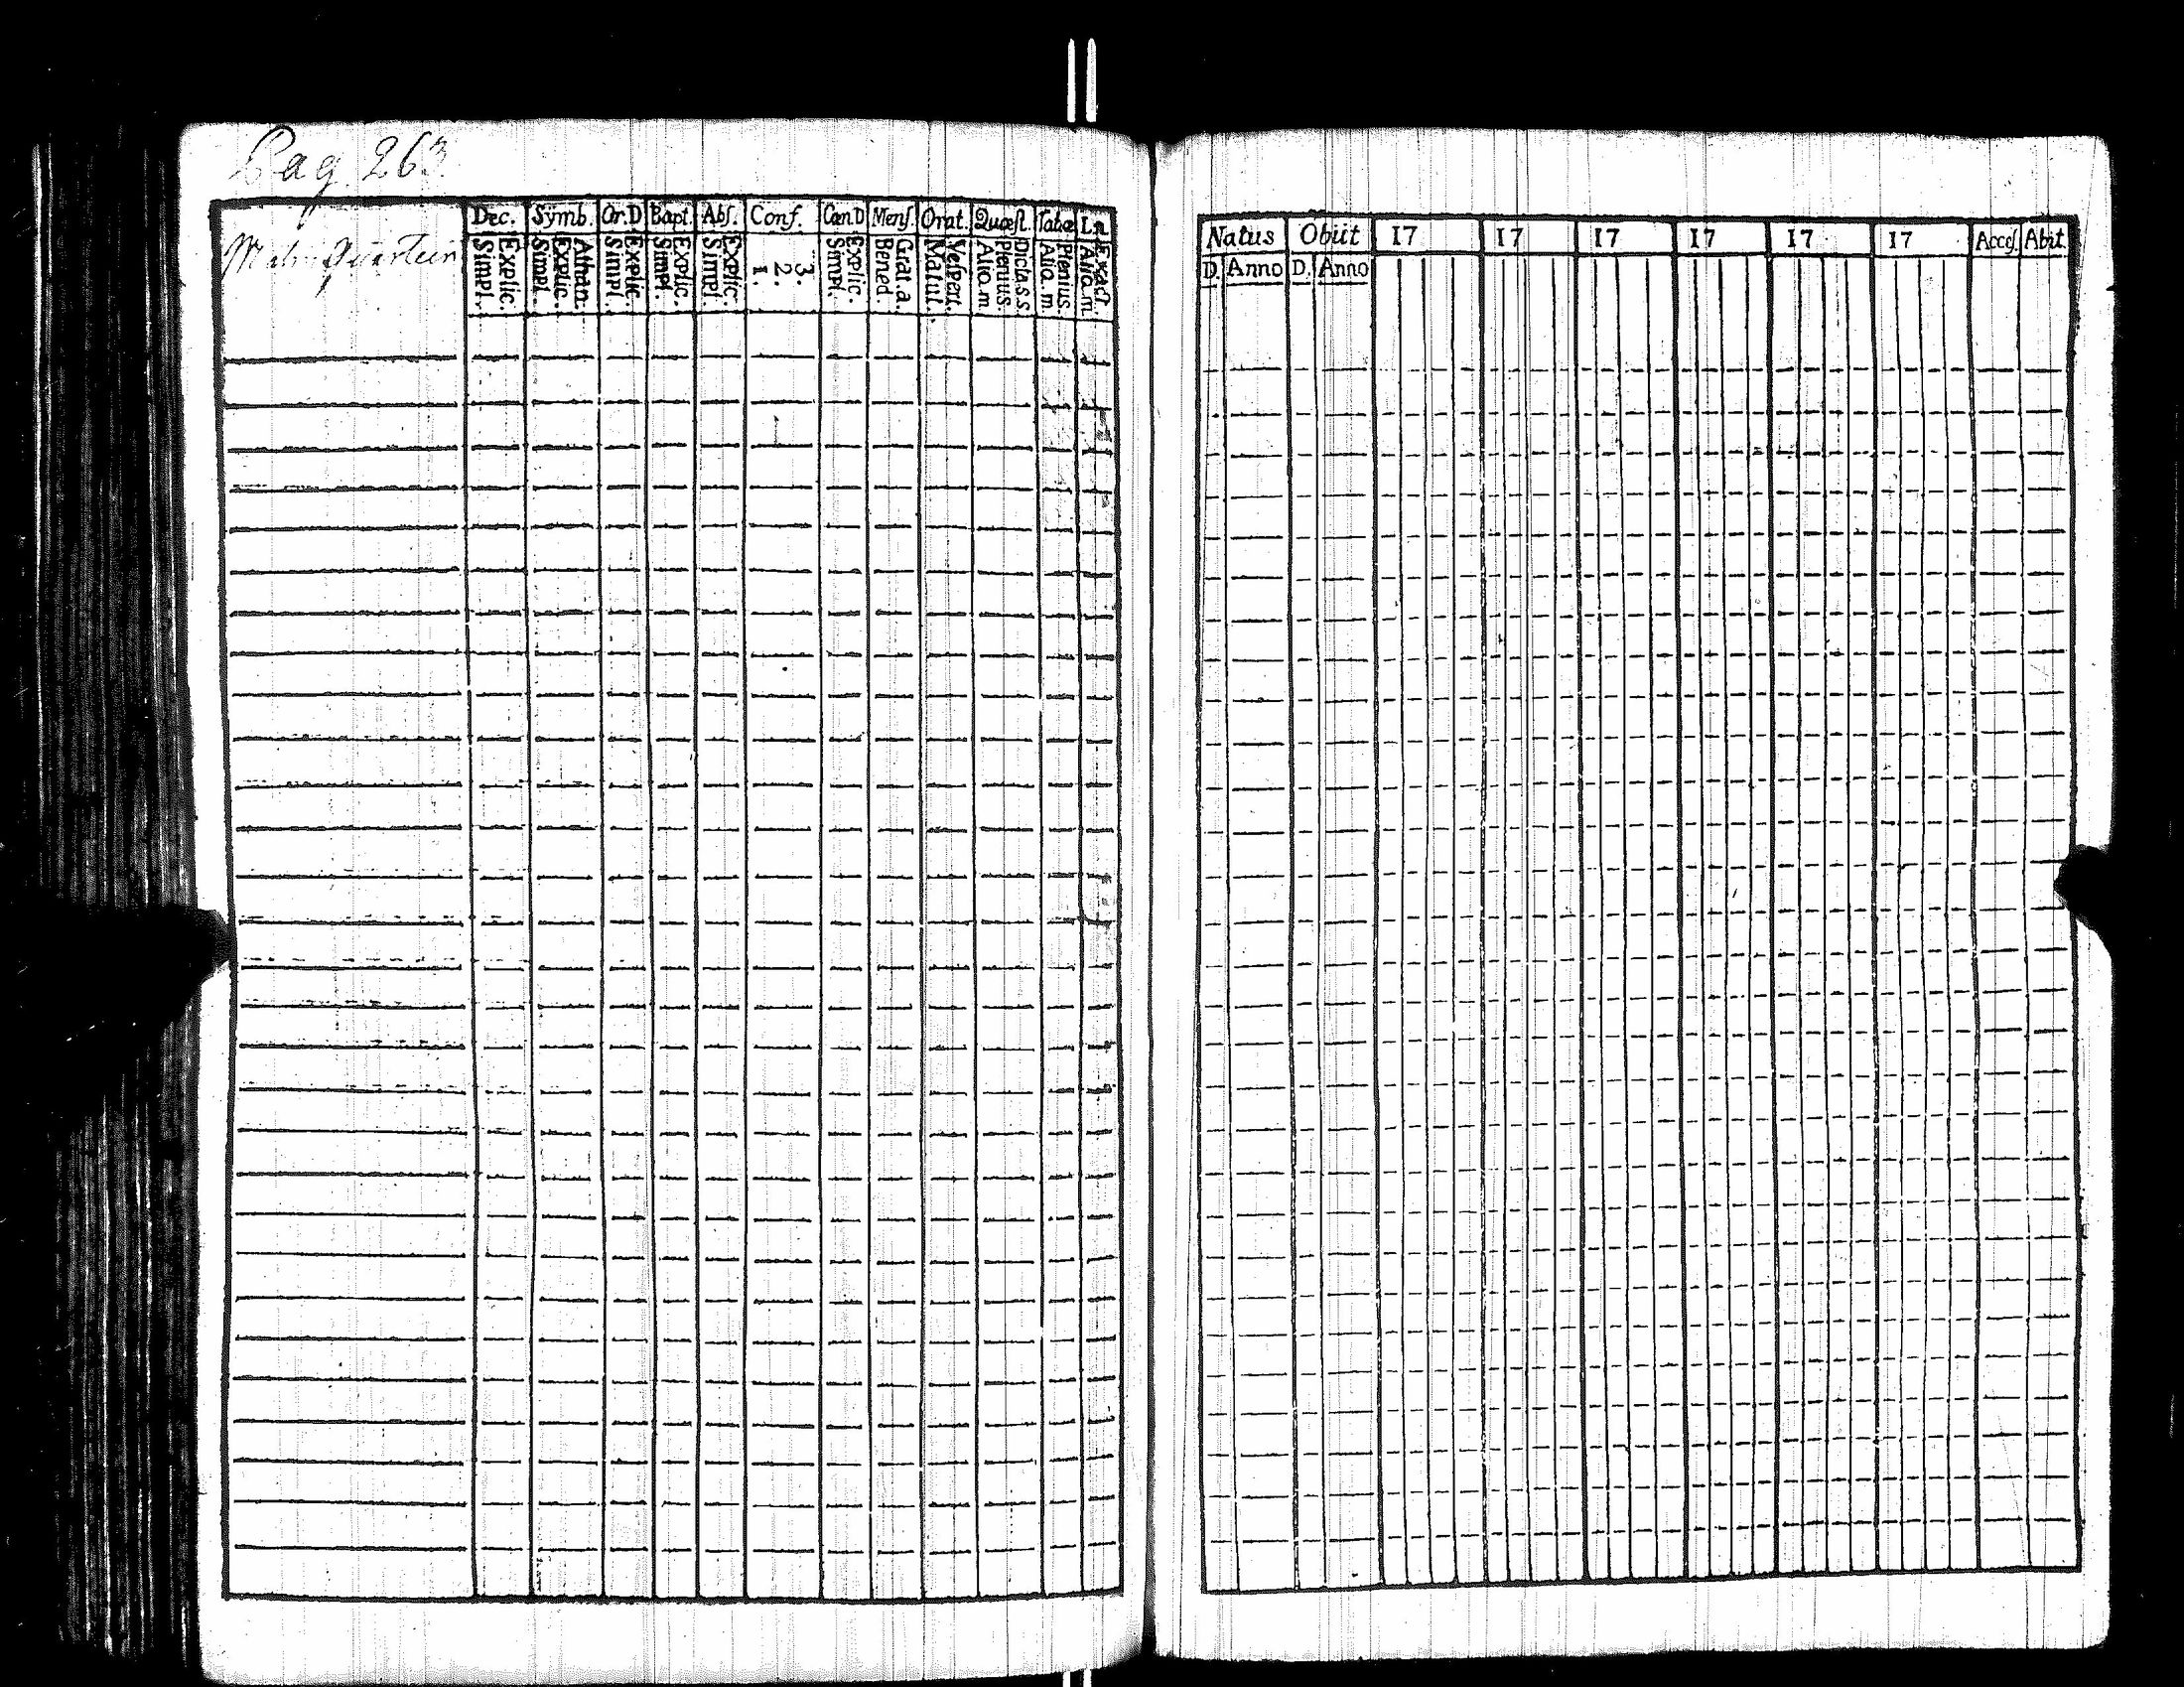 Pag. 263
Malm Quarteer
Dec. Symb. Or.D Bapt. Abs. Conf. Cœn.D Mens. Orat. Quæst. Tabœ L.n
Explic. Simpl. Athan. Explic. Simpl. Explic. Simpl. Explic. Simpl. Explic. Simpl. 3. 2. 1. Explic. Simpl. Grat. a. Bened. Vespert. Matut. Dicta. s.s. Plenius. Aliq. m Plenius. Aliq. m Exact. Aliq. m
Natus Obiit 17 17 17 17 17 17 Acces. Abit.
D. Anno D. Anno